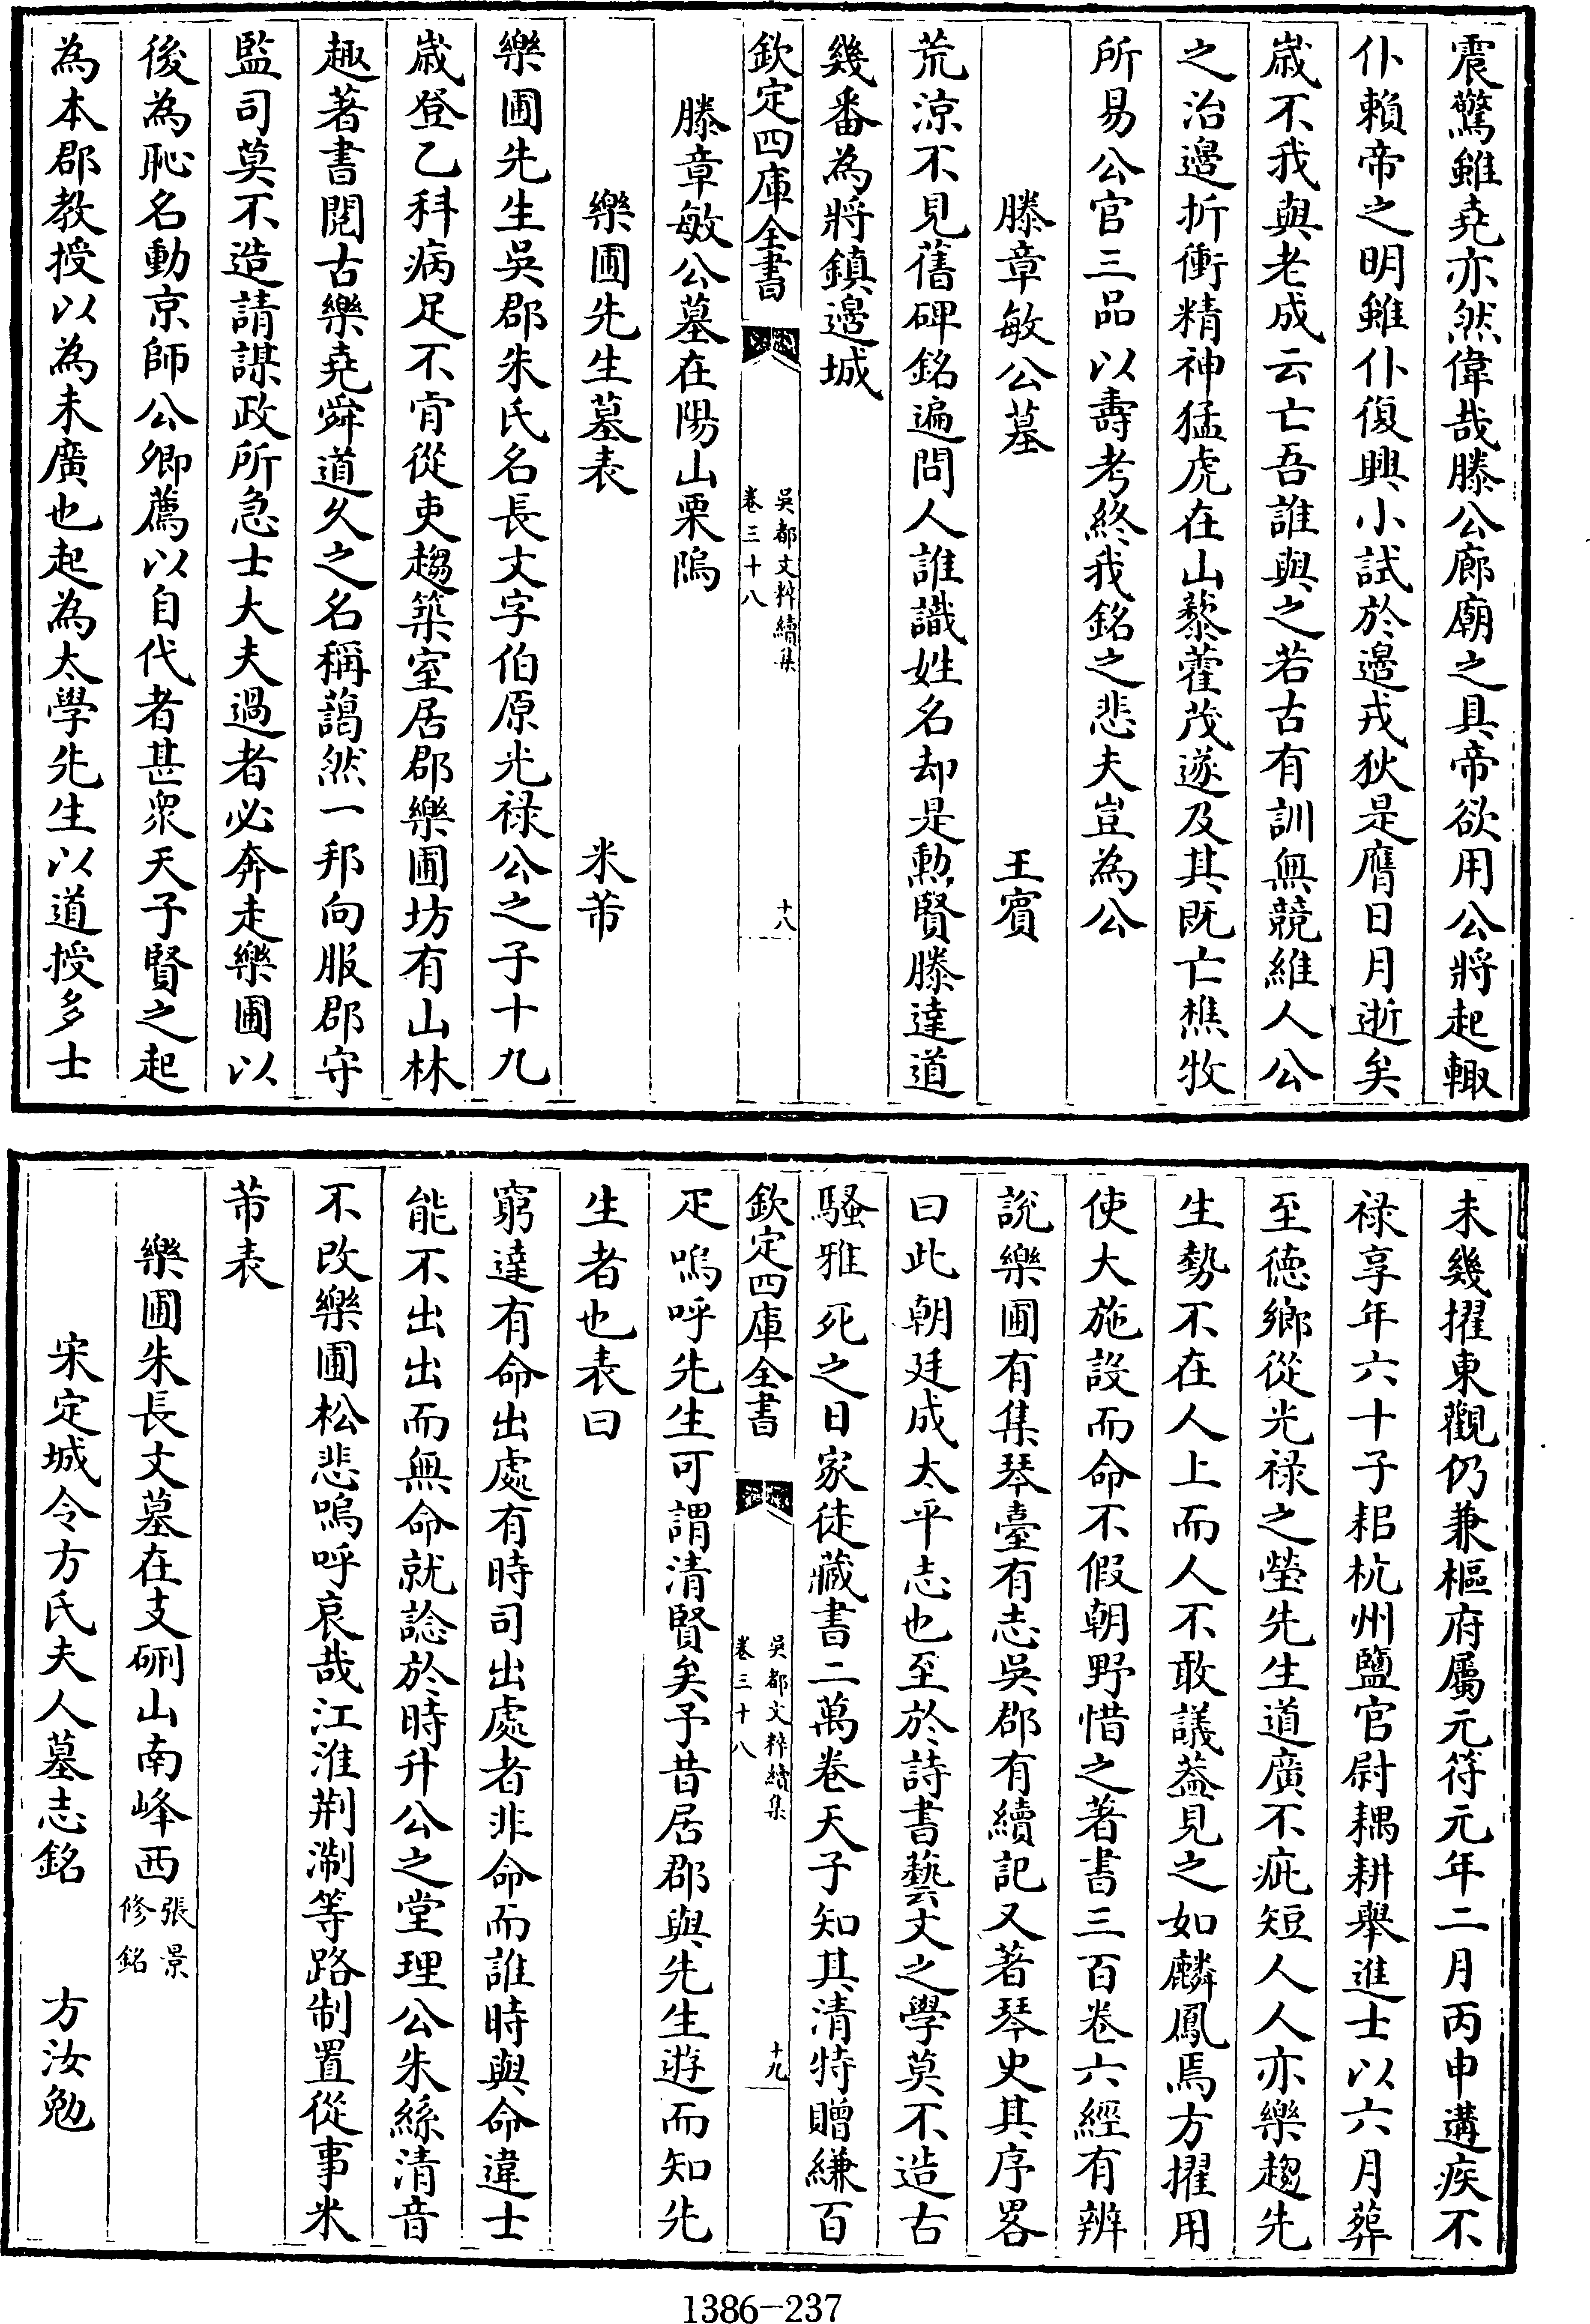 震驚雖堯亦然偉哉滕公廊廟之具帝欲用公將起輙
仆賴帝之明雖仆復興小試於邊戎狄是膺日月逝矣
歲不我與老成云亡吾誰與之若古有訓無競維人公
之治邊折衝精神猛虎在山藜藿茂遂及其既亡樵牧
所易公官三品以壽考終我銘之悲夫豈為公
滕章敏公墓 王賓
荒涼不見舊碑銘遍問人誰識姓名却是勲賢滕達道
幾番為將鎮邊城
欽定四庫全書 吳都文粹續集 卷三十八 十八
滕章敏公墓在陽山栗隖
樂圃先生墓表 米芾
樂圃先生吳郡朱氏名長文字伯原光禄公之子十九
歲登乙科病足不肯從吏趨築室居郡樂圃坊有山林
趣著書閱古樂堯舜道久之名稱藹然一邦向服郡守
監司莫不造請謀政所急士大夫過者必奔走樂圃以
後為恥名動京師公卿薦以自代者甚衆天子賢之起
為本郡教授以為未廣也起為太學先生以道授多士
未幾擢東觀仍兼樞府屬元符元年二月丙申遘疾不
禄享年六十子耜杭州鹽官尉耦耕舉進士以六月葬
至德鄉從光禄之塋先生道廣不疵短人人亦樂趨先
生勢不在人上而人不敢議葢見之如麟鳳焉方擢用
使大施設而命不假朝野惜之著書三百卷六經有辨
說樂圃有集琴臺有志吳郡有續記又著琴史其序畧
曰此朝廷成太平志也至於詩書藝文之學莫不造古
騷雅死之日家徒藏書二萬卷天子知其清特贈縑百
欽定四庫全書 吳都文粹續集 卷三十八 十九
疋嗚呼先生可謂清賢矣予昔居郡與先生遊而知先
生者也表曰
窮達有命出處有時司出處者非命而誰時與命違士
能不出出而無命就諗於時升公之堂理公朱絲清音
不改樂圃松悲嗚呼哀哉江淮荆淛等路制置從事米
芾表
樂圃朱長文墓在支硎山南峰西 張景修銘
宋定城令方氏夫人墓志銘 方汝勉
1386-237